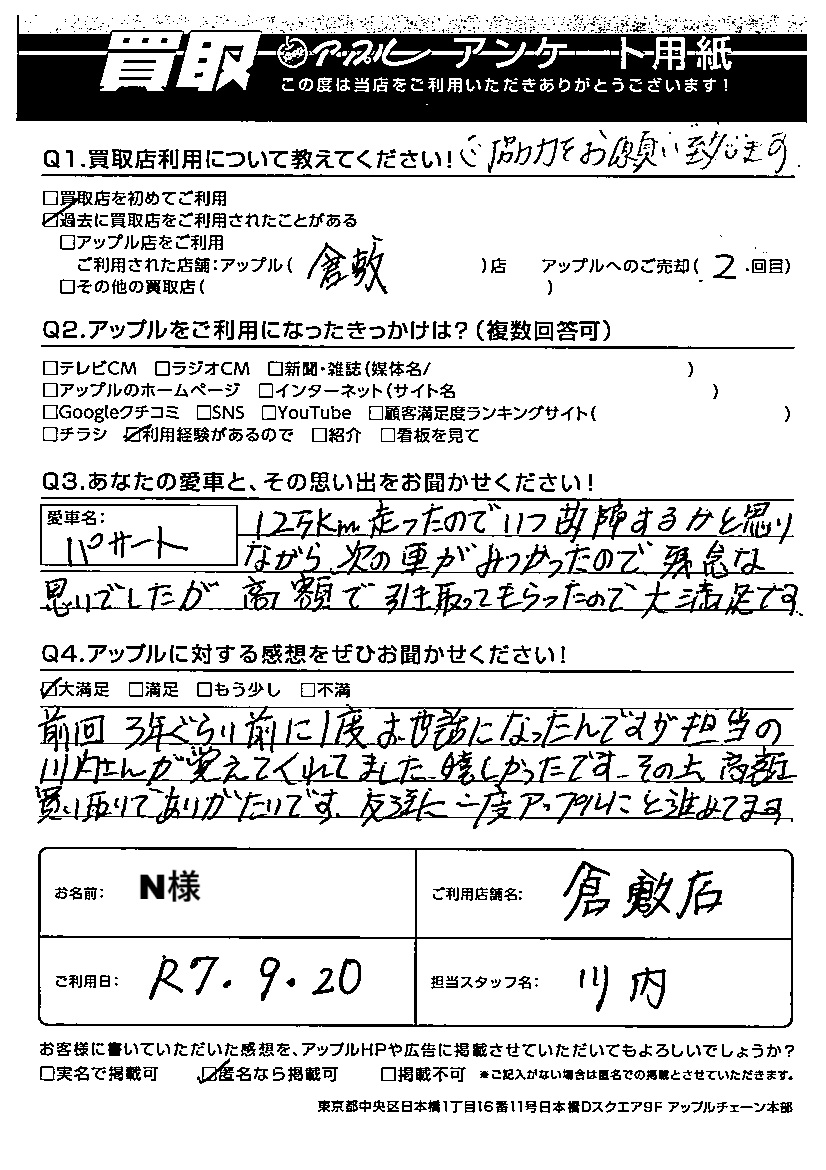 買取 アップル アンケート用紙
この度は当店をご利用いただきありがとうございます！
Q1.買取店利用について教えてください！ご協力をお願い致します
□買取店を初めてご利用
☑過去に買取店をご利用されたことがある
□アップル店をご利用
ご利用された店舗：アップル（ 倉敷 ）店 アップルへのご売却（ 2 回目）
□その他の買取店（ ）
Q2.アップルをご利用になったきっかけは？（複数回答可）
□テレビCM □ラジオCM □新聞・雑誌（媒体名/ ）
□アップルのホームページ □インターネット（サイト名 ）
□Googleクチコミ □SNS □YouTube □顧客満足度ランキングサイト（ ）
□チラシ ☑利用経験があるので □紹介 □看板を見て
Q3.あなたの愛車と、その思い出をお聞かせください！
愛車名： パサート
12万km走ったのでいつ故障するかと思い
ながら、次の車がみつかったので残念な
思いでしたが高額で引き取ってもらったので大満足です
Q4.アップルに対する感想をぜひお聞かせください！
☑大満足 □満足 □もう少し □不満
前回3年ぐらい前に1度お世話になったんですが担当の
川内さんが覚えてくれてました。嬉しかったです。その上、高額
買い取りでありがたいです。友達に一度アップルにと進めてます
お名前： N様
ご利用店舗名： 倉敷店
ご利用日： R7.9.20
担当スタッフ名： 川内
お客様に書いていただいた感想を、アップルHPや広告に掲載させていただいてもよろしいでしょうか？
□実名で掲載可 ☑匿名なら掲載可 □掲載不可 ※ご記入がない場合は匿名での掲載とさせていただきます。
東京都中央区日本橋1丁目16番11号日本橋Dスクエア9F アップルチェーン本部